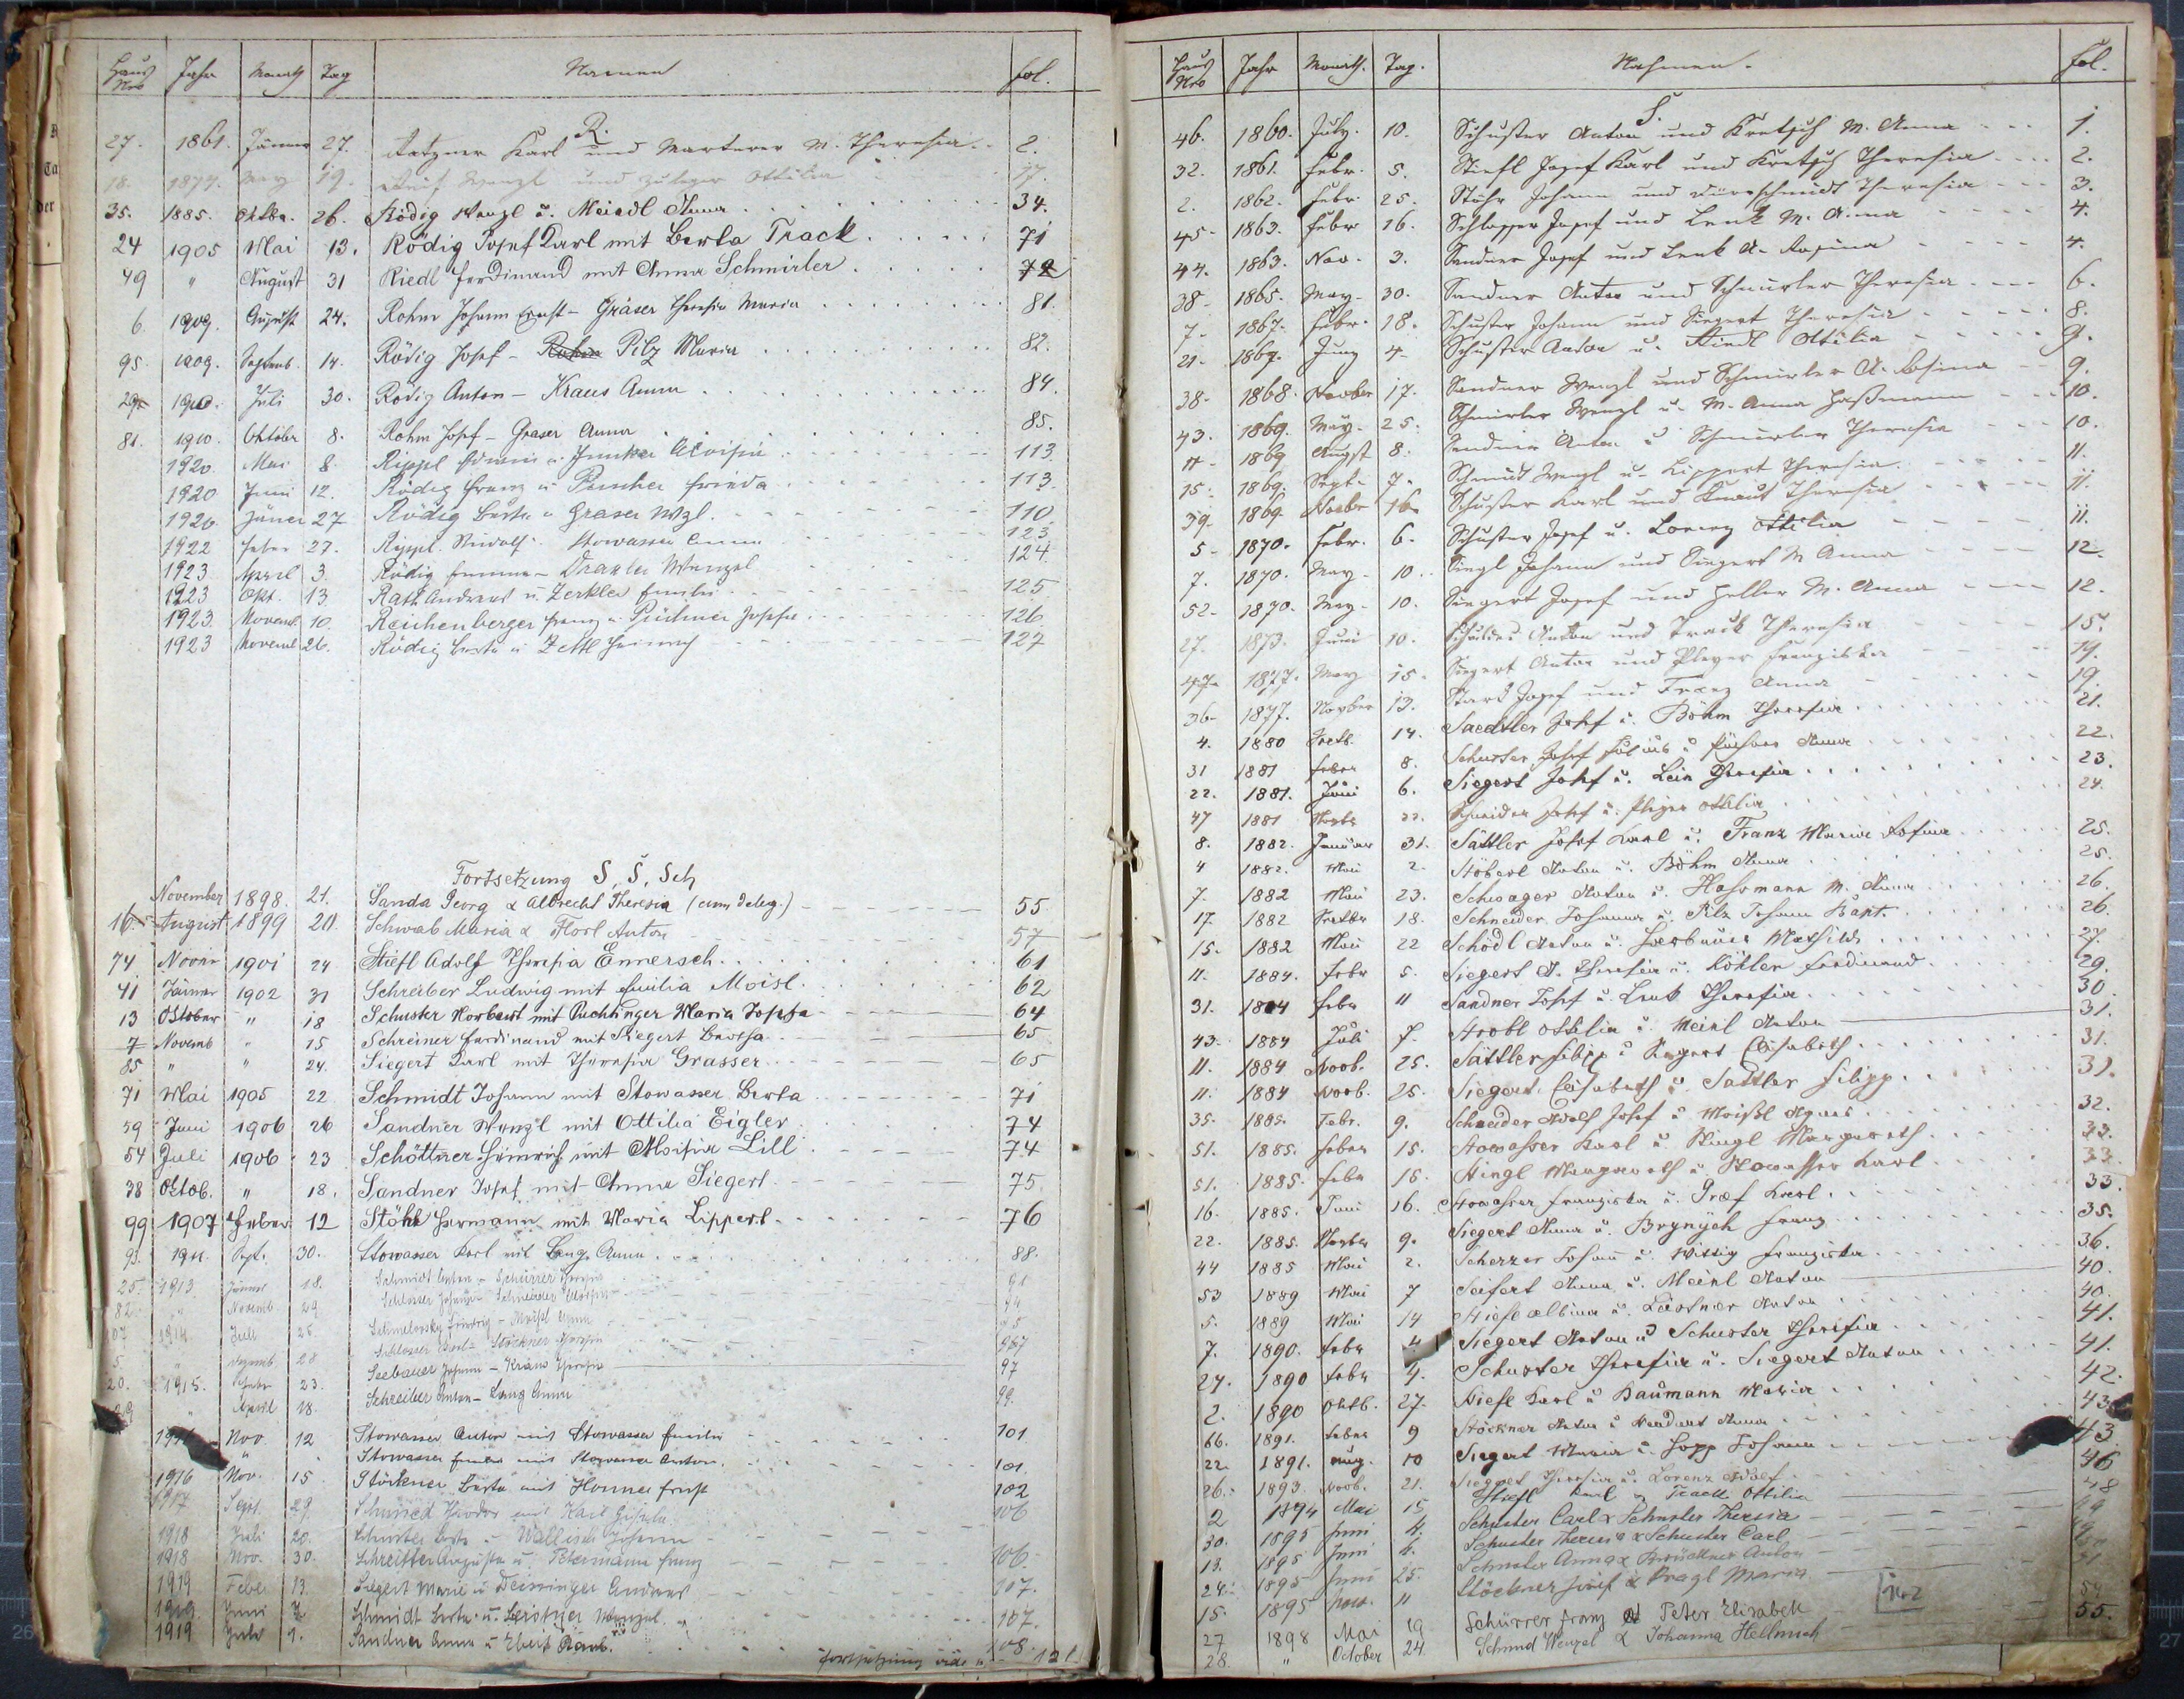 Haus Nro Jahr Monath Tag Namen fol.
R.
27. 1861. Jänner 27. Karl und Marterer M. Theresia 2.
18. 1874. May 19. Wenzl und Ottilia 17.
35. 1885. Oktbr. 26. Rödig Wenzl u. Meindl Anna 34.
24 1905 Mai 13. Rödig Josef Karl mit Berta Track 71
49 " August 31 Riedl Ferdinand mit Anna Schmirler 72
6. 1909. August 24. Rohm Johann Ernst - Gräser Theresia Maria 81.
95. 1909. Septemb. 14. Rödig Josef - Pilz Maria 82.
29. 1910. Juli 30. Rödig Anton - Kraus Anna 84.
81. 1910. Oktober 8. Rohm Josef - Graser Anna 85.
1920. Mai 8. Rippl Erwin u. Junker Aloisia 113
1920 Juni 12. Rödig Franz u. Frieda 113
1920 Jäner 27 Rödig Berta u. Graser Wzl. 110
1922 Feber 27. Rippl Rudolf - Stowasser Anna 123
1923 April 3 Rödig - Draxler Wenzel 124
1923 Okt. 13 Rath Andreas u. Zerkler Emilie 125
1923. Novemb. 10. Reichenberger Franz u. Püchner Josefa 126
1923 Novemb 26. Rödig Berta u. Zettl Heinrich 127
Fortsetzung S, Š, Sch
November 1898. 21. Sanda Georg & Albrecht Theresia (cum deleg.) 55
16. August 1899 20. Schwab Maria & Florl Anton 57
74 Novm 1901 24 Stiefl Adolf Theresia Ennersch 61
41 Jänner 1902 31 Schreiber Ludwig mit Emilia Moisl 62
13 Oktober " 18 Schuster Norbert mit Puchtinger Maria Josefa 64
7 Novemb " 15 Schreiner Ferdinand mit Siegert Bertha 65
85 " " 24. Siegert Karl mit Theresia Grasser 65
71 Mai 1905 22 Schmidt Johann mit Stowasser Berta 71
59 Juni 1906 26 Sandner Wenzl mit Ottilia Eigler 74
54 Juli 1906 23 Schöttner Heinrich mit Aloisia Lill 74
38 Oktob. " 18. Sandner Josef mit Anna Siegert 75
99 1907 Feber 12 Stöhr Hermann mit Maria Lippert 76
93. 1911. Sept. 30. Stowasser Karl mit Lang Anna 88.
25. 1913 Jänner 18. Schmidt Anton - Schürrer Theresia 91
82. " Novemb. 29 Schlosser Johann - Schneider 94
107 1914 Juli 25 Friedrich - Moißl Anna 95
5. " Dezemb. 28 Schlosser Karl - Stöckner Theresia 967
20. 1915. Feber 23. Seebauer Johann - Kraus Theresia 97
" April 18. Schreiber Anton - Lang Anna 99.
Nov. 12 Stowasser Anton mit Stowasser Emilie 101
" Stowasser Emilie mit Stowasser Anton 101.
1916 Nov. 15 Stöckner Berta mit Honner Ernst 102
1917 Sept. 29. Schmied Theodor mit Karl 106
1918 Juli 20. Schuster Berta u. Wallisch Johann
1918 Nov. 30. Schreitter Augusta u. Petermann Franz 106.
1919 Feber 13. Siegert Marie u. Deisinger Andreas 107.
1919. Juni 7. Schmidt Berta u. Leistner Wenzel 107.
1919 Juli 1. Sandner Anna u. 108.
Fortsetzung vide 121
Haus Nro Jahr Monath. Tag. Nahmen. fol.
S.
46. 1860. July. 10. Schuster Anton und Kretsch M. Anna 1.
32. 1861. Febr. 5. Stiefl Josef Karl und Kretsch Theresia 2.
2. 1862. Febr. 25. Stöhr Johann und Dürrschmidt Theresia 3.
45. 1863. Febr 16. Schlosser Josef und Lenk M. Anna 4.
44. 1863. Nov. 3. Sandner Josef und Lenk A. Rosina 4.
38. 1865. May. 30. Sandner Anton und Schmirler Theresia 6.
7. 1867. Febr. 18. Schuster Johann und Siegert Theresia 8.
21. 1867. Juny 4. Schuster Anton u. Riedl Ottilia 9.
38. 1868. Novber 17. Sandner Wenzl und Schmirler A. Rosina 9.
43. 1869. May. 25. Schmirler Wenzl u. M. Anna Haßmann 10.
11. 1869 Augst 8. Sandner Anton u. Schmirler Theresia 10.
15. 1869. Sept. 7. Schmidt Wenzl u. Lippert Theresia 11.
39. 1869. Novbr 16. Schuster Karl und Theresia 11.
5. 1870. Febr. 6. Schuster Josef u. Lorenz Ottilia 11.
7. 1870. May. 10. Siegl Johann und Siegert M Anna 12.
52. 1870. May. 10. Siegert Josef und Heller M. Anna 12.
27. 1873. Juni 10. Schuldes Anton und Track Theresia 15.
47. 1877. May 15. Siegert Anton und Pleyer Franziska 19.
36. 1877. Novber 13. Stark Josef und Franz Anna 19.
4. 1880 14. Saedtler Josef u. Böhm Theresia 21.
31 1881 Feber 8. Schuster Josef Julius u. Püchner Anna 22.
22. 1881. Juni 6. Siegert Josef u. Lein Theresia 23.
47 1881 Novbr 22. Schneider Josef u. Pleyer Ottilia 24.
8. 1882. Januar 31. Sättler Josef Karl u. Franz Maria Rosina 25.
4 1882. Mai 2. Stöberl Anton u. Böhm Anna 25.
7. 1882 Mai 23. Schwager Anton u. Haßmann M. Anna 26.
17. 1882 18. Schneider Johanna u. Pilz Johann Bapt. 26.
15. 1882 Mai 22 Schödl Anton u. Mathilde 27.
11. 1884. Febr 5. Siegert A. Theresia u. Köhler Ferdinand 29.
31. 1884 Febr 11 Sandner Josef u. Lenk Theresia 30.
43. 1884 Juli 7. Strobl Ottilia u. Meinl Anton 31.
11. 1884 Novb. 25. Sättler Filipp u. Siegert Elisabeth 31.
11. 1884 Novb. 25. Siegert Elisabeth u. Sättler Filipp 31.
35. 1885. Febr. 9. Schneider Adolf Josef u. Moißl Agnes 32.
51. 1885. Feber 15. Stowasser Karl u. Stingl Margareth 33.
51. 1885. Febr 15. Stingl Margareth u. Stowasser Karl 33.
16. 1885. Juni 16. Stowasser Franziska u. Præf Karl 33.
22. 1885. Novbr 9. Siegert Anna u. Brynych Franz 35.
44 1885 Mai 2. Scherzer Johann u. Wittig Franziska 36.
53 1889 Mai 7 Seifert Anna u. Meinl Anton 40.
5. 1889 Mai 14 Stiefl Albina u. Leistner Anton 40.
7. 1890. Febr 4 Siegert Anton u. Schuster Theresia 41.
27. 1890 Febr 4. Schuster Theresia u. Siegert Anton 41.
2. 1890 Oktb. 27. Stiefl Karl u. Baumann Maria 42.
66. 1891. Feber 9 Stöckner Anton u. Anna 43
22. 1891. Aug. 10 Siegert u. Hopp Johann 43
26. 1893. Novb. 21. Siegert Theresia u. Lorenz Adolf 46
2 1894 Mai 15 Stiefl Karl u. Ottilia 48
30. 1895 Juni 4. Schuster Carl & Schuster Theresia 49
13. 1895 Juni 4. Schuster Theresia & Schuster Carl
24. 1895 Juni 25. Schuster Anna & Brückner Anton
15. 1895 Nov. 11 Stöckner Josef & Pragl Maria 51
27 1898 Mai 19 Schürrer Franz & Peter Elisabeth 54
28. " October 24. Schmid Wenzel & Johanna Hellmich 55.